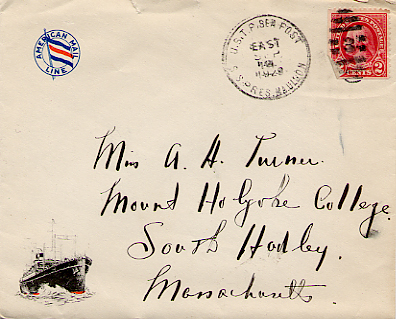 AMERICAN MAIL
LINE
U.S.T.P. SEA POST
EAST
S.S. PRES. MADISON
2 CENTS 2
Miss A. H. Turner.
Mount Holyoke College.
South Hadley.
Massachusetts.